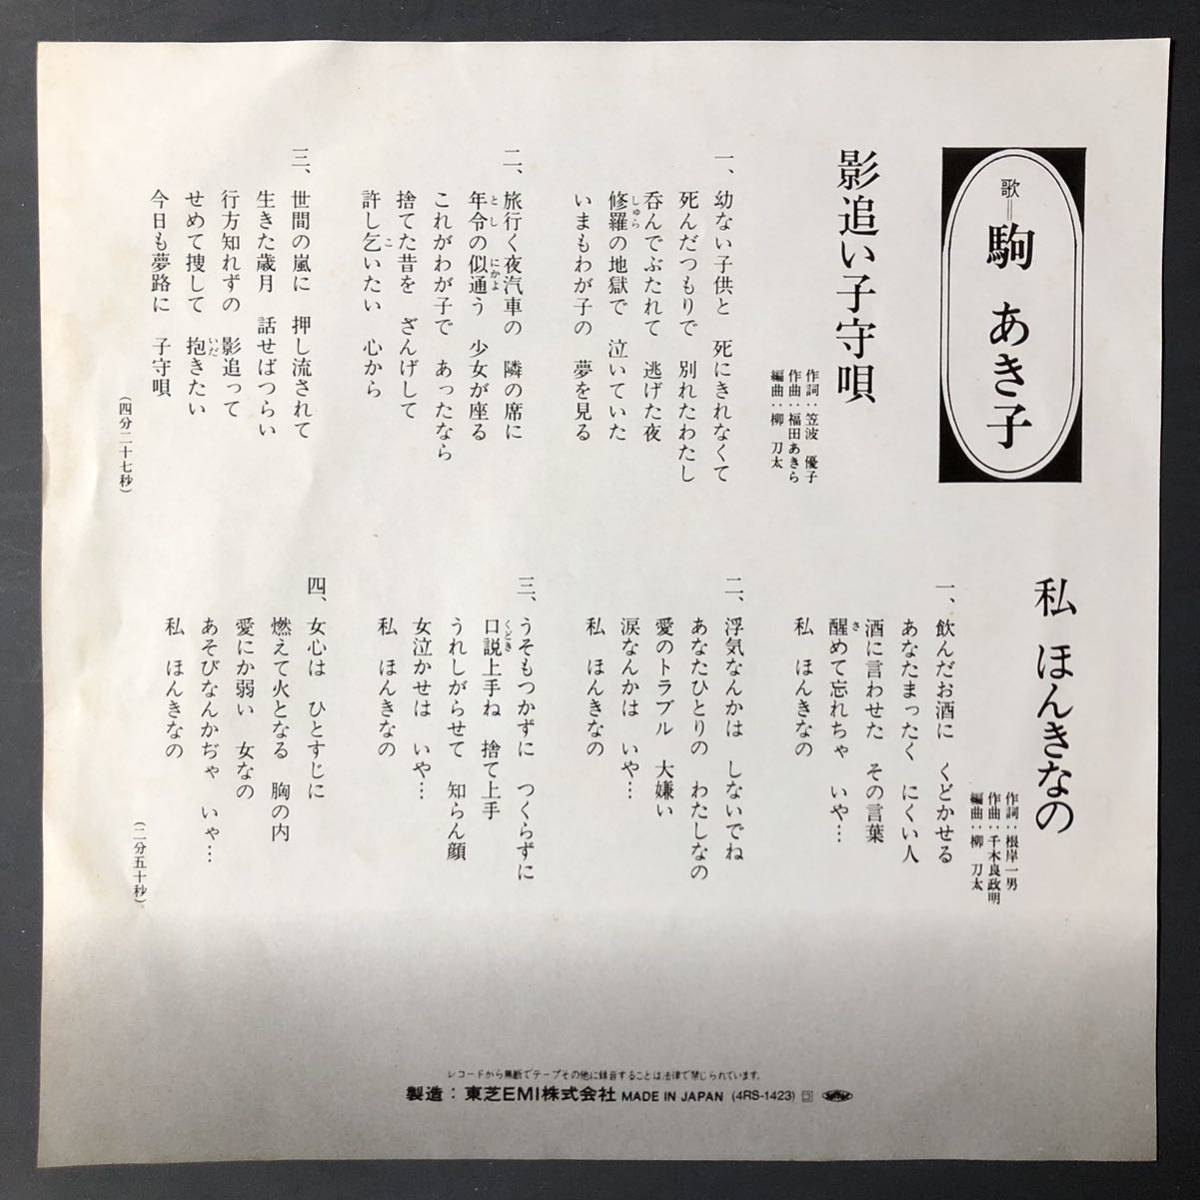 歌＝駒 あき子
影追い子守唄
作詞：笠波 優子
作曲：福田あきら
編曲：柳 刀太
一、幼ない子供と 死にきれなくて
死んだつもりで 別れたわたし
呑んでぶたれて 逃げた夜
修羅の地獄で 泣いていた
しゅら
いまもわが子の 夢を見る
二、旅行く夜汽車の 隣の席に
年令の似通う 少女が座る
とし にかよ
これがわが子で あったなら
捨てた昔を ざんげして
許し乞いたい 心から
こ
三、世間の嵐に 押し流されて
生きた歳月 話せばつらい
行方知れずの 影追って
せめて捜して 抱きたい
いだ
今日も夢路に 子守唄
（四分二十七秒）
私 ほんきなの
作詞：根岸一男
作曲：千木良政明
編曲：柳 刀太
一、飲んだお酒に くどかせる
あなたまったく にくい人
酒に言わせた その言葉
醒めて忘れちゃ いや…
さ
私 ほんきなの
二、浮気なんかは しないでね
あなたひとりの わたしなの
愛のトラブル 大嫌い
涙なんかは いや…
私 ほんきなの
三、うそもつかずに つくらずに
口説上手ね 捨て上手
くどき
うれしがらせて 知らん顔
女泣かせは いや…
私 ほんきなの
四、女心は ひとすじに
燃えて火となる 胸の内
愛にか弱い 女なの
あそびなんかぢゃ いや…
私 ほんきなの
（二分五十秒）
レコードから無断でテープその他に録音することは法律で禁じられています。
製造：東芝EMI株式会社 MADE IN JAPAN (4RS-1423)